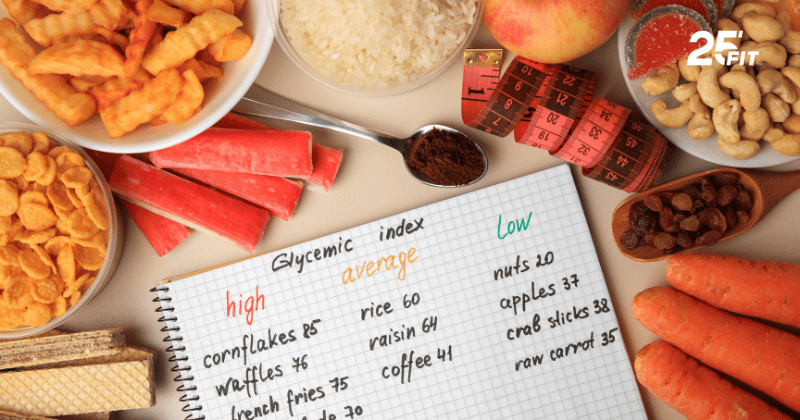 25'
FIT
Glycemic index
high
cornflakes 85
waffles 76
french fries 75
70
average
rice 60
raisin 64
coffee 41
Low
nuts 20
apples 37
crab sticks 38
raw carrot 35